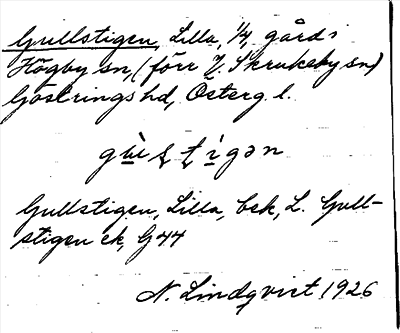 Gullstigen, Lilla, 1/4, gård i
Högby sn, (förr V. Skrukeby sn)
Göstrings hd, Österg l.
Gullstigen, Lilla, bsk, L. Gull-
stigen ek, G 44
N. Lindqvist 1926